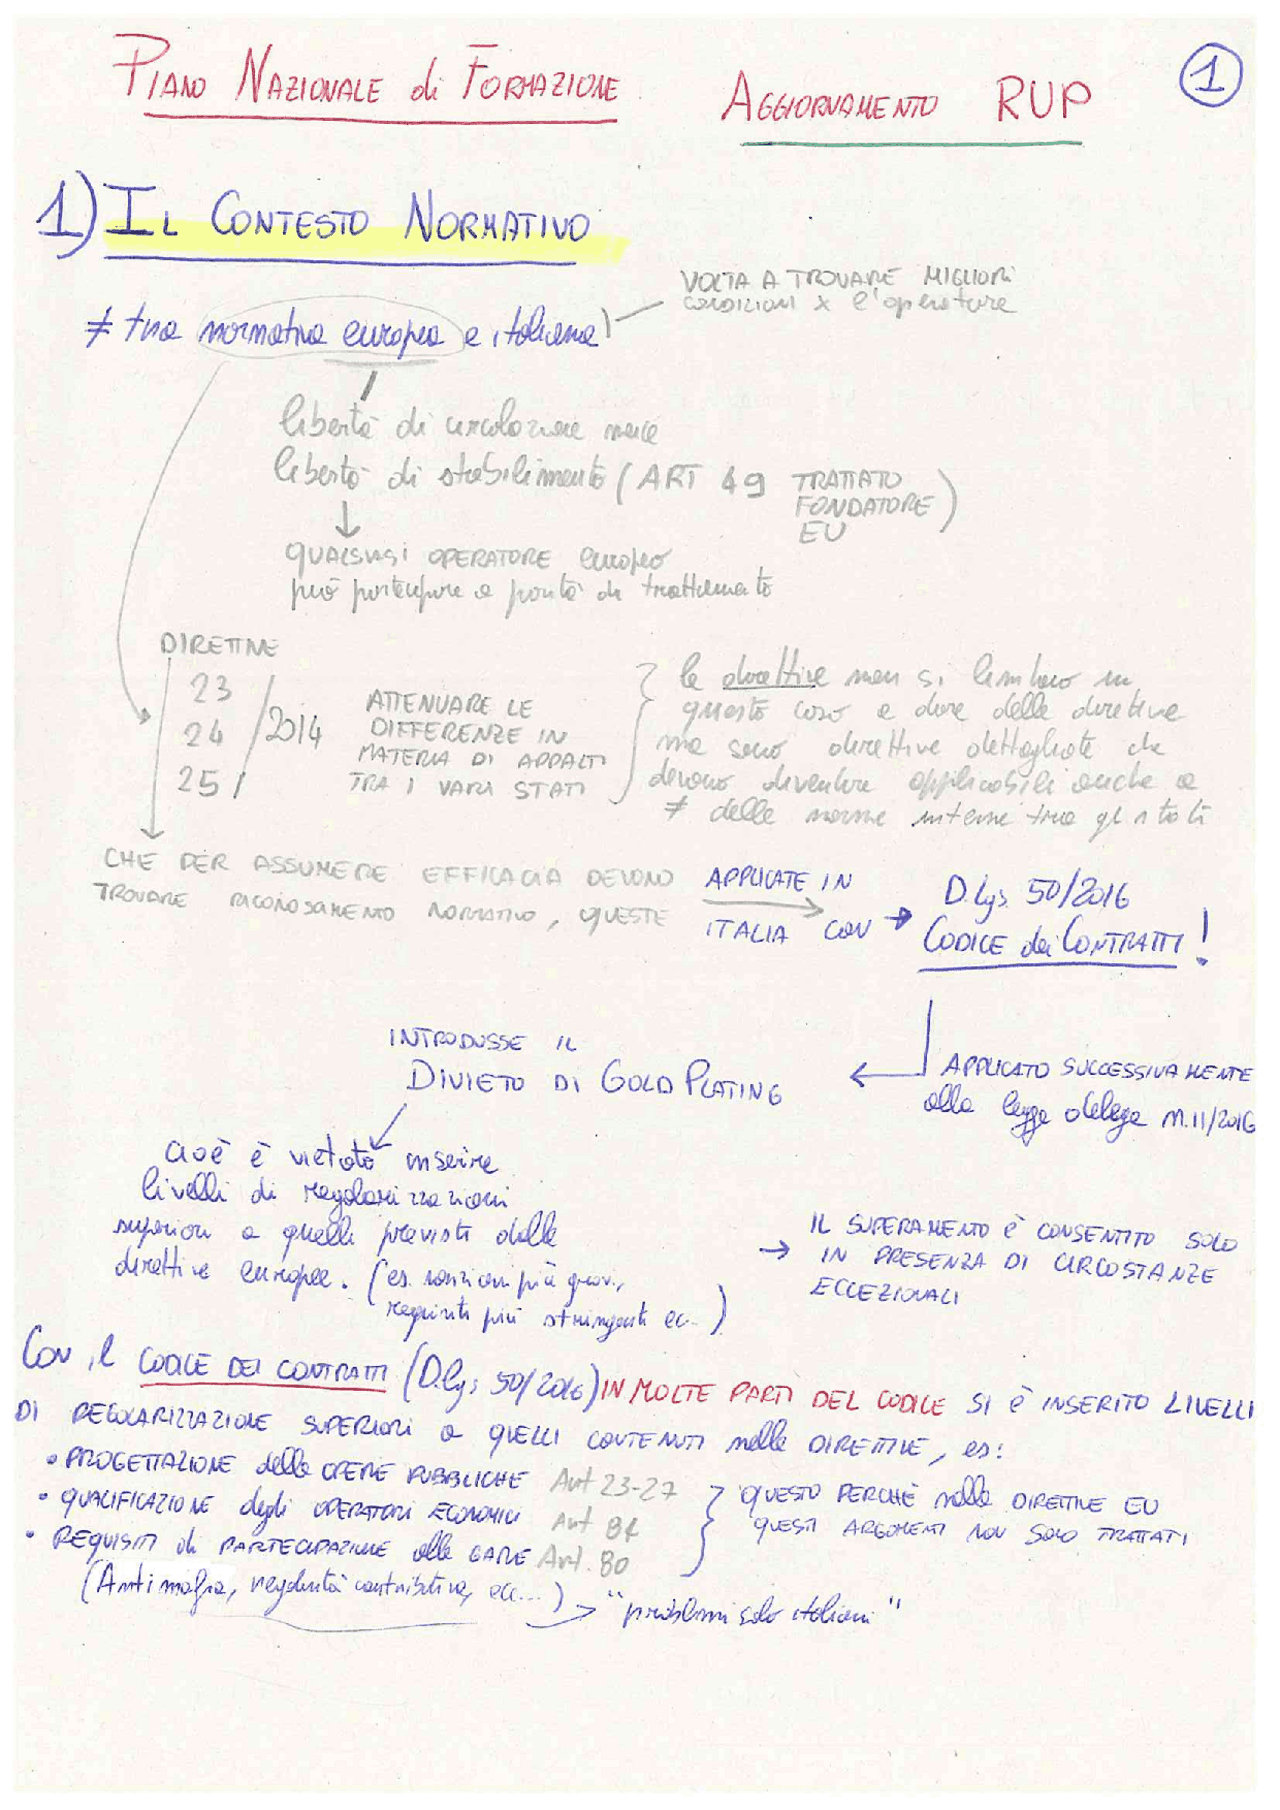 PIANO NAZIONALE di FORMAZIONE
AGGIORNAMENTO RUP
1
1) IL CONTESTO NORMATIVO
VOLTA A TROVARE MIGLIORI
CONDIZIONI x l'operatore
≠ tra normativa europea e italiana
libertà di circolazione merce
libertà di stabilimento (ART 49 TRATTATO
FONDATORE
EU)
QUALSIASI OPERATORE europeo
può partecipare a parità di trattamento
DIRETTIVE
23
24
25
/2014
ATTENUARE LE
DIFFERENZE IN
MATERIA DI APPALTI
TRA I VARI STATI
le direttive non si limitano in
questo caso a dare delle direttive
ma sono direttive dettagliate che
devono diventare applicabili anche a
≠ delle norme interne tra gli stati
CHE PER ASSUMERE EFFICACIA DEVONO
TROVARE RICONOSCAMENTO NORMATIVO, QUESTE
APPLICATE IN
ITALIA CON
D.lgs. 50/2016
CODICE dei CONTRATTI!
APPLICATO SUCCESSIVAMENTE
alla legge delega n.11/2016
INTRODUSSE IL
DIVIETO DI GOLD PLATING
cioè è vietato inserire
livelli di regolarizzazioni
superiori a quelli previsti dalle
direttive europee. (es. sanzioni più gravi,
requisiti più stringenti ec..)
IL SUPERAMENTO È CONSENTITO SOLO
IN PRESENZA DI CIRCOSTANZE
ECCEZIONALI
CON il CODICE DEI CONTRATTI (D.lgs 50/2016) IN MOLTE PARTI DEL CODICE SI È INSERITO LIVELLI
DI REGOLARIZZAZIONE SUPERIORI a QUELLI CONTENUTI nelle DIRETTIVE, es:
• PROGETTAZIONE delle OPERE PUBBLICHE Art 23-27
• QUALIFICAZIONE degli OPERATORI ECONOMICI Art 84
• REQUISITI di PARTECIPAZIONE alle GARE Art. 80
(Antimafia, regolarità contributiva, ecc...)
QUESTO PERCHÈ nelle DIRETTIVE EU
QUESTI ARGOMENTI NON SONO TRATTATI
"problemi solo italiani"